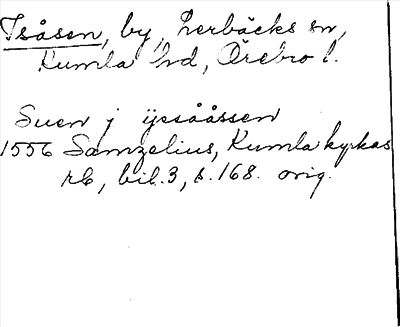 Isåsen, by, Lerbäcks sn,
Kumla hd, Örebro l.
Suen j ijssååssen
1556 Samzelius, Kumla kyrkas
rb, bil. 3, s. 168. orig.